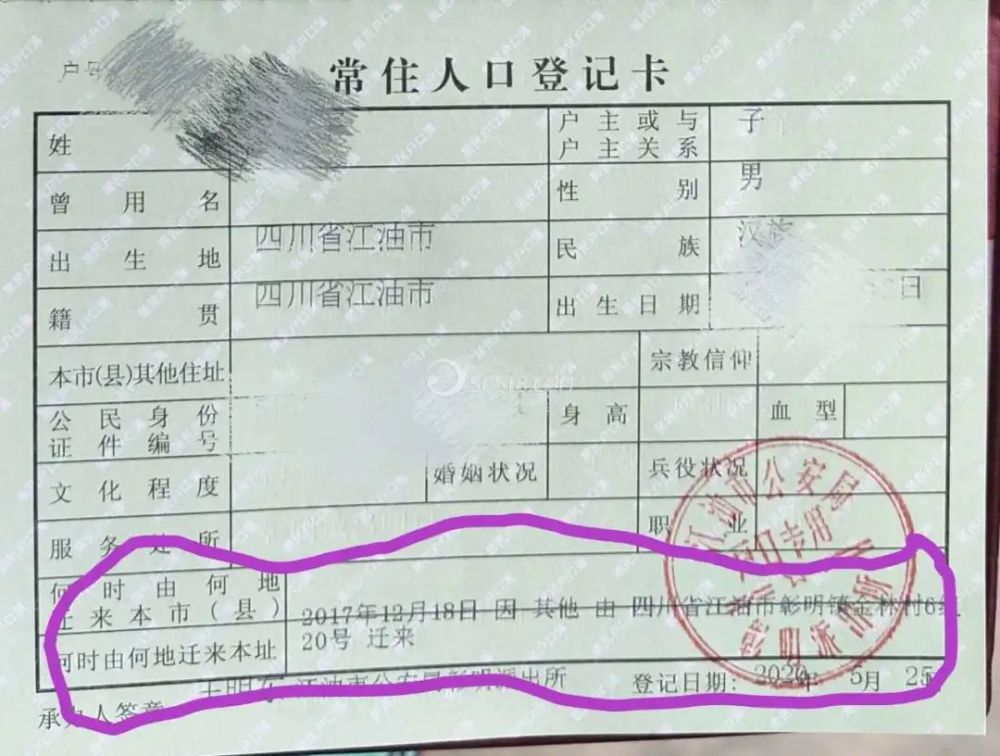 户号
常住人口登记卡
姓 户主或与户主关系 子
曾用名 性别 男
出生地 四川省江油市 民族 汉族
籍贯 四川省江油市 出生日期 日
本市(县)其他住址 宗教信仰
公民身份证件编号 身高 血型
文化程度 婚姻状况 兵役状况
服务处所 职业
何时由何地迁来本市(县)
何时由何地迁来本址 2017年12月18日 因 其他 由 四川省江油市彰明镇金林村6组
20号 迁来
江油市公安局
户口专用
彰明派出所
江油市公安局彰明派出所
承办人签章 登记日期: 2020年 5月 25